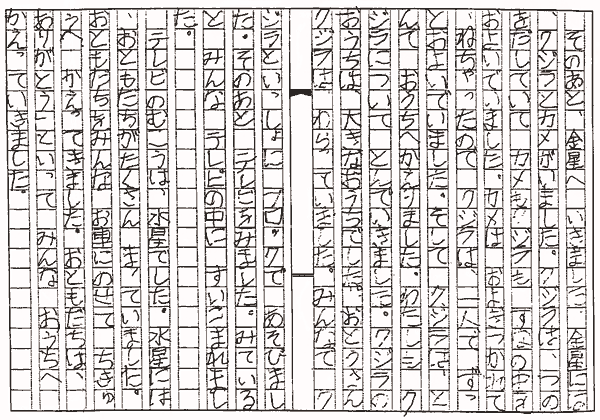 そのあと、金星へ いきました。金星には
、クジラとカメがいました。クジラは、つの
をだしていて カメも クジラも すなの中を
およいでいました。カメは およぎつかれて
、ねちゃったので クジラは 一人で ずっ
とおよいでいました。そして クジラは、と
んで おうちへかえりました。わたしも ク
ジラについて とんでいきました。クジラの
おうちは 大きなおうちでした。おとうさん
クジラは わらっていました。みんなで ク
ジラといっしょに ブロックで あそびまし
た。そのあと テレビをみました。みている
と みんな テレビの中に すいこまれまし
た。
テレビのむこうは、水星でした。水星には
、おともだちがたくさん まっていました。
おともだちをみんな お車にのせて ちきゅ
うへ かえってきました。おともだちは、
ありがとうといって みんな おうちへ
かえっていきました。